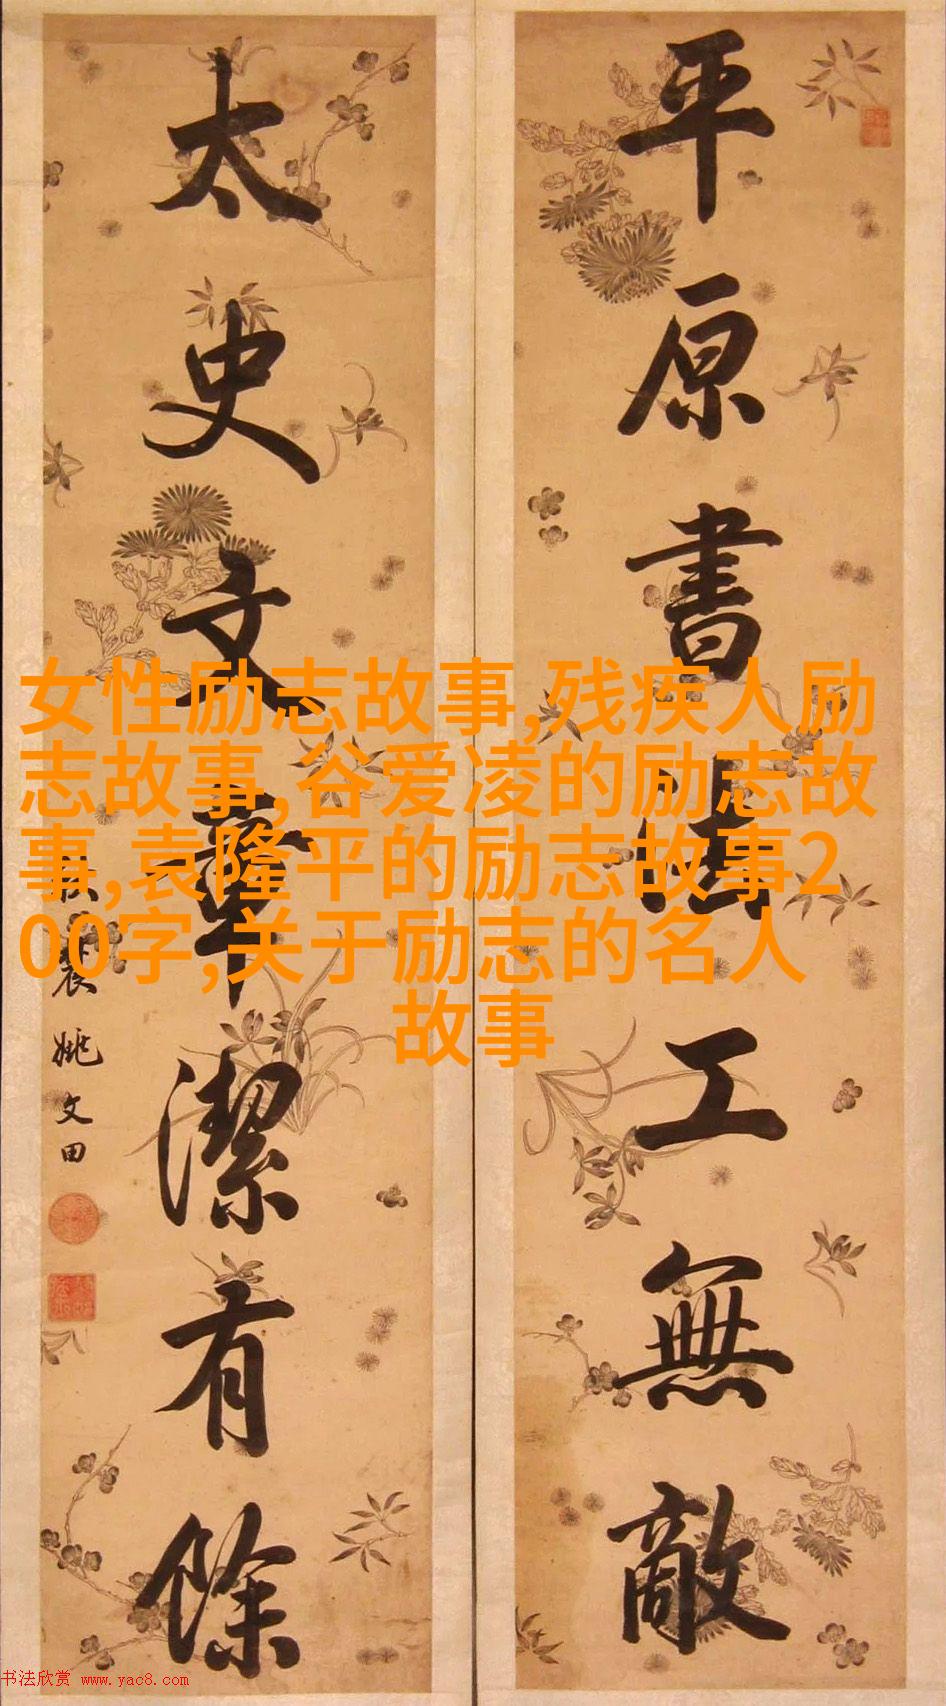 平原書法工無敵
太史文章潔有餘
秋農姚文田
女性励志故事,残疾人励
志故事,谷爱凌的励志故
事,袁隆平的励志故事2
00字,关于励志的名人
故事
书法欣赏 www.yac8.com